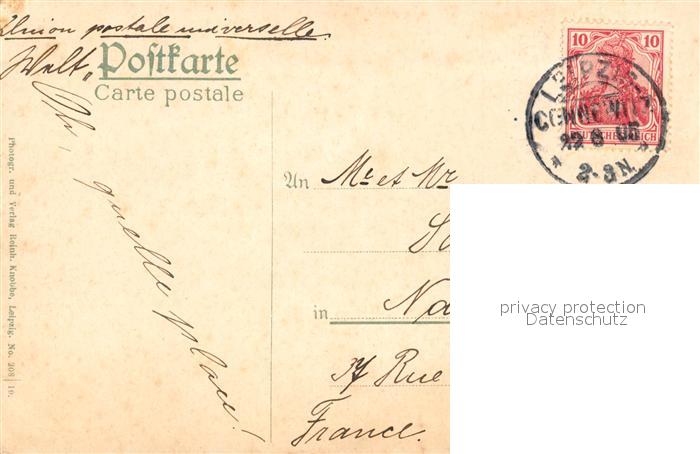 Union postale universelle.
Welt„Postkarte
Carte postale
Oh, quelle place!
Photogr. und Verlag Reinh. Knobbe, Leipzig. No. 208/19.
10 10
DEUTSCHES REICH
LEIPZIG
22 8 05
* 2-3N. *
An Mr et Mr
in Na
37 Rue
France.
privacy protection
Datenschutz